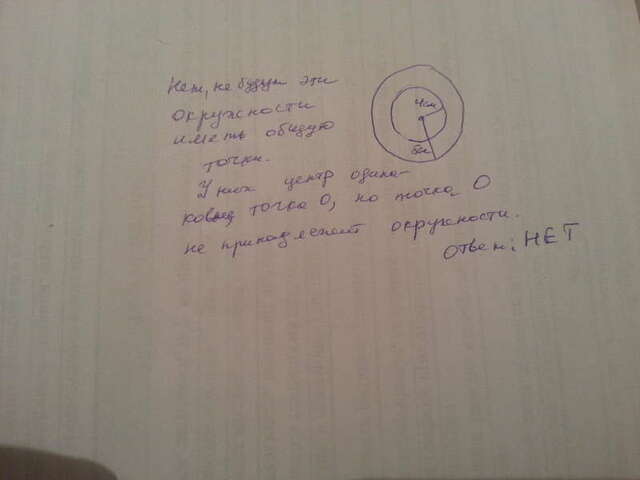 Нет, не будут эти
окружности
иметь общую
точки.
У них центр одина-
ковый точка О, но точка О
не принадлежит окружности.
Ответ: НЕТ
4см